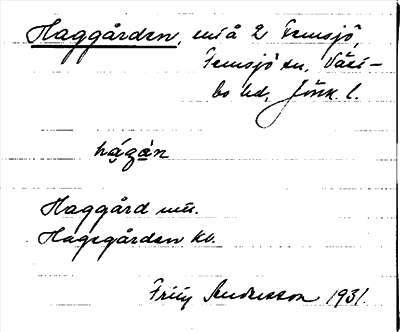 Haggården, på 2 Femsjö,
Femsjö sn, Väst-
bo hd, Jönk. l.
hágàn
Haggård mu.
Hagsgården kv.
Fritz Andersson 1931.